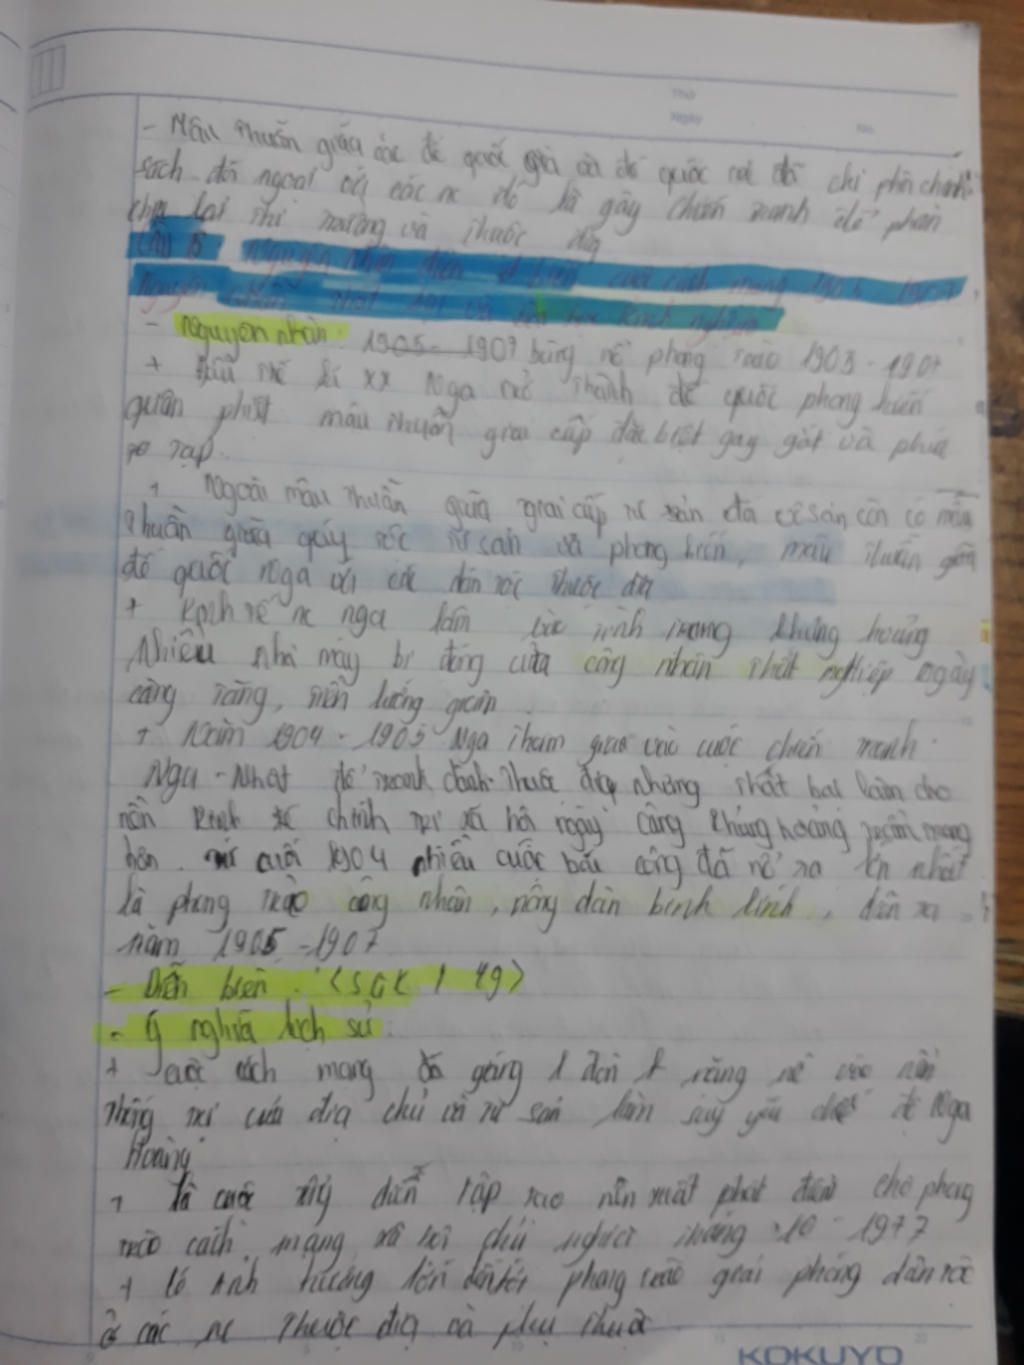 Thứ
Ngày
No.
- Mâu thuẫn giữa các đế quốc già và đế quốc trẻ đã chi phối chính
sách đối ngoại của các nc đó là gây chiến tranh để phân
chia lại thị trường và thuộc địa
Câu Nguyên nhân diễn biến của cách mạng 1905 - 1907
Nguyên nhân thất bại và bài học kinh nghiệm
- Nguyên nhân 1905 - 1907 bùng nổ phong trào 1905 - 1907
+ Đầu thế kỉ XX Nga trở thành đế quốc phong kiến
quân phiệt mâu thuẫn giai cấp đặc biệt gay gắt và phức
tạp
+ Ngoài mâu thuẫn giữa giai cấp tư sản và vô sản còn có mâu
thuẫn giữa quý tộc tư sản và phong kiến, mâu thuẫn giữa
đế quốc Nga với các dân tộc thuộc địa
+ Kinh tế nc nga lâm vào tình trạng khủng hoảng
Nhiều nhà máy bị đóng cửa công nhân thất nghiệp ngày
càng tăng, tiền lương giảm
+ Năm 1904 - 1905 Nga tham gia vào cuộc chiến tranh
Nga - Nhật để tranh dành thuộc địa nhưng thất bại làm cho
nền kinh tế chính trị xã hội ngày càng khủng hoảng trầm trọng
hơn. từ cuối 1904 nhiều cuộc bãi công đã nổ ra lớn nhất
là phong trào công nhân, nông dân binh lính, diễn ra
năm 1905 - 1907
- Diễn biến. <SGK / 49>
- Ý nghĩa lịch sử:
+ cuộc cách mạng đã giáng 1 đòn nặng nề vào nền
thống trị của địa chủ và tư sản làm suy yếu chế độ Nga
Hoàng
+ Là cuộc tổng diễn tập tạo nên xuất phát điểm cho phong
trào cách mạng xã hội chủ nghĩa tháng 10 - 1977
+ Có ảnh hưởng lớn đến phong trào giải phóng dân tộc
ở các nc thuộc địa và phụ thuộc
KOKUYO